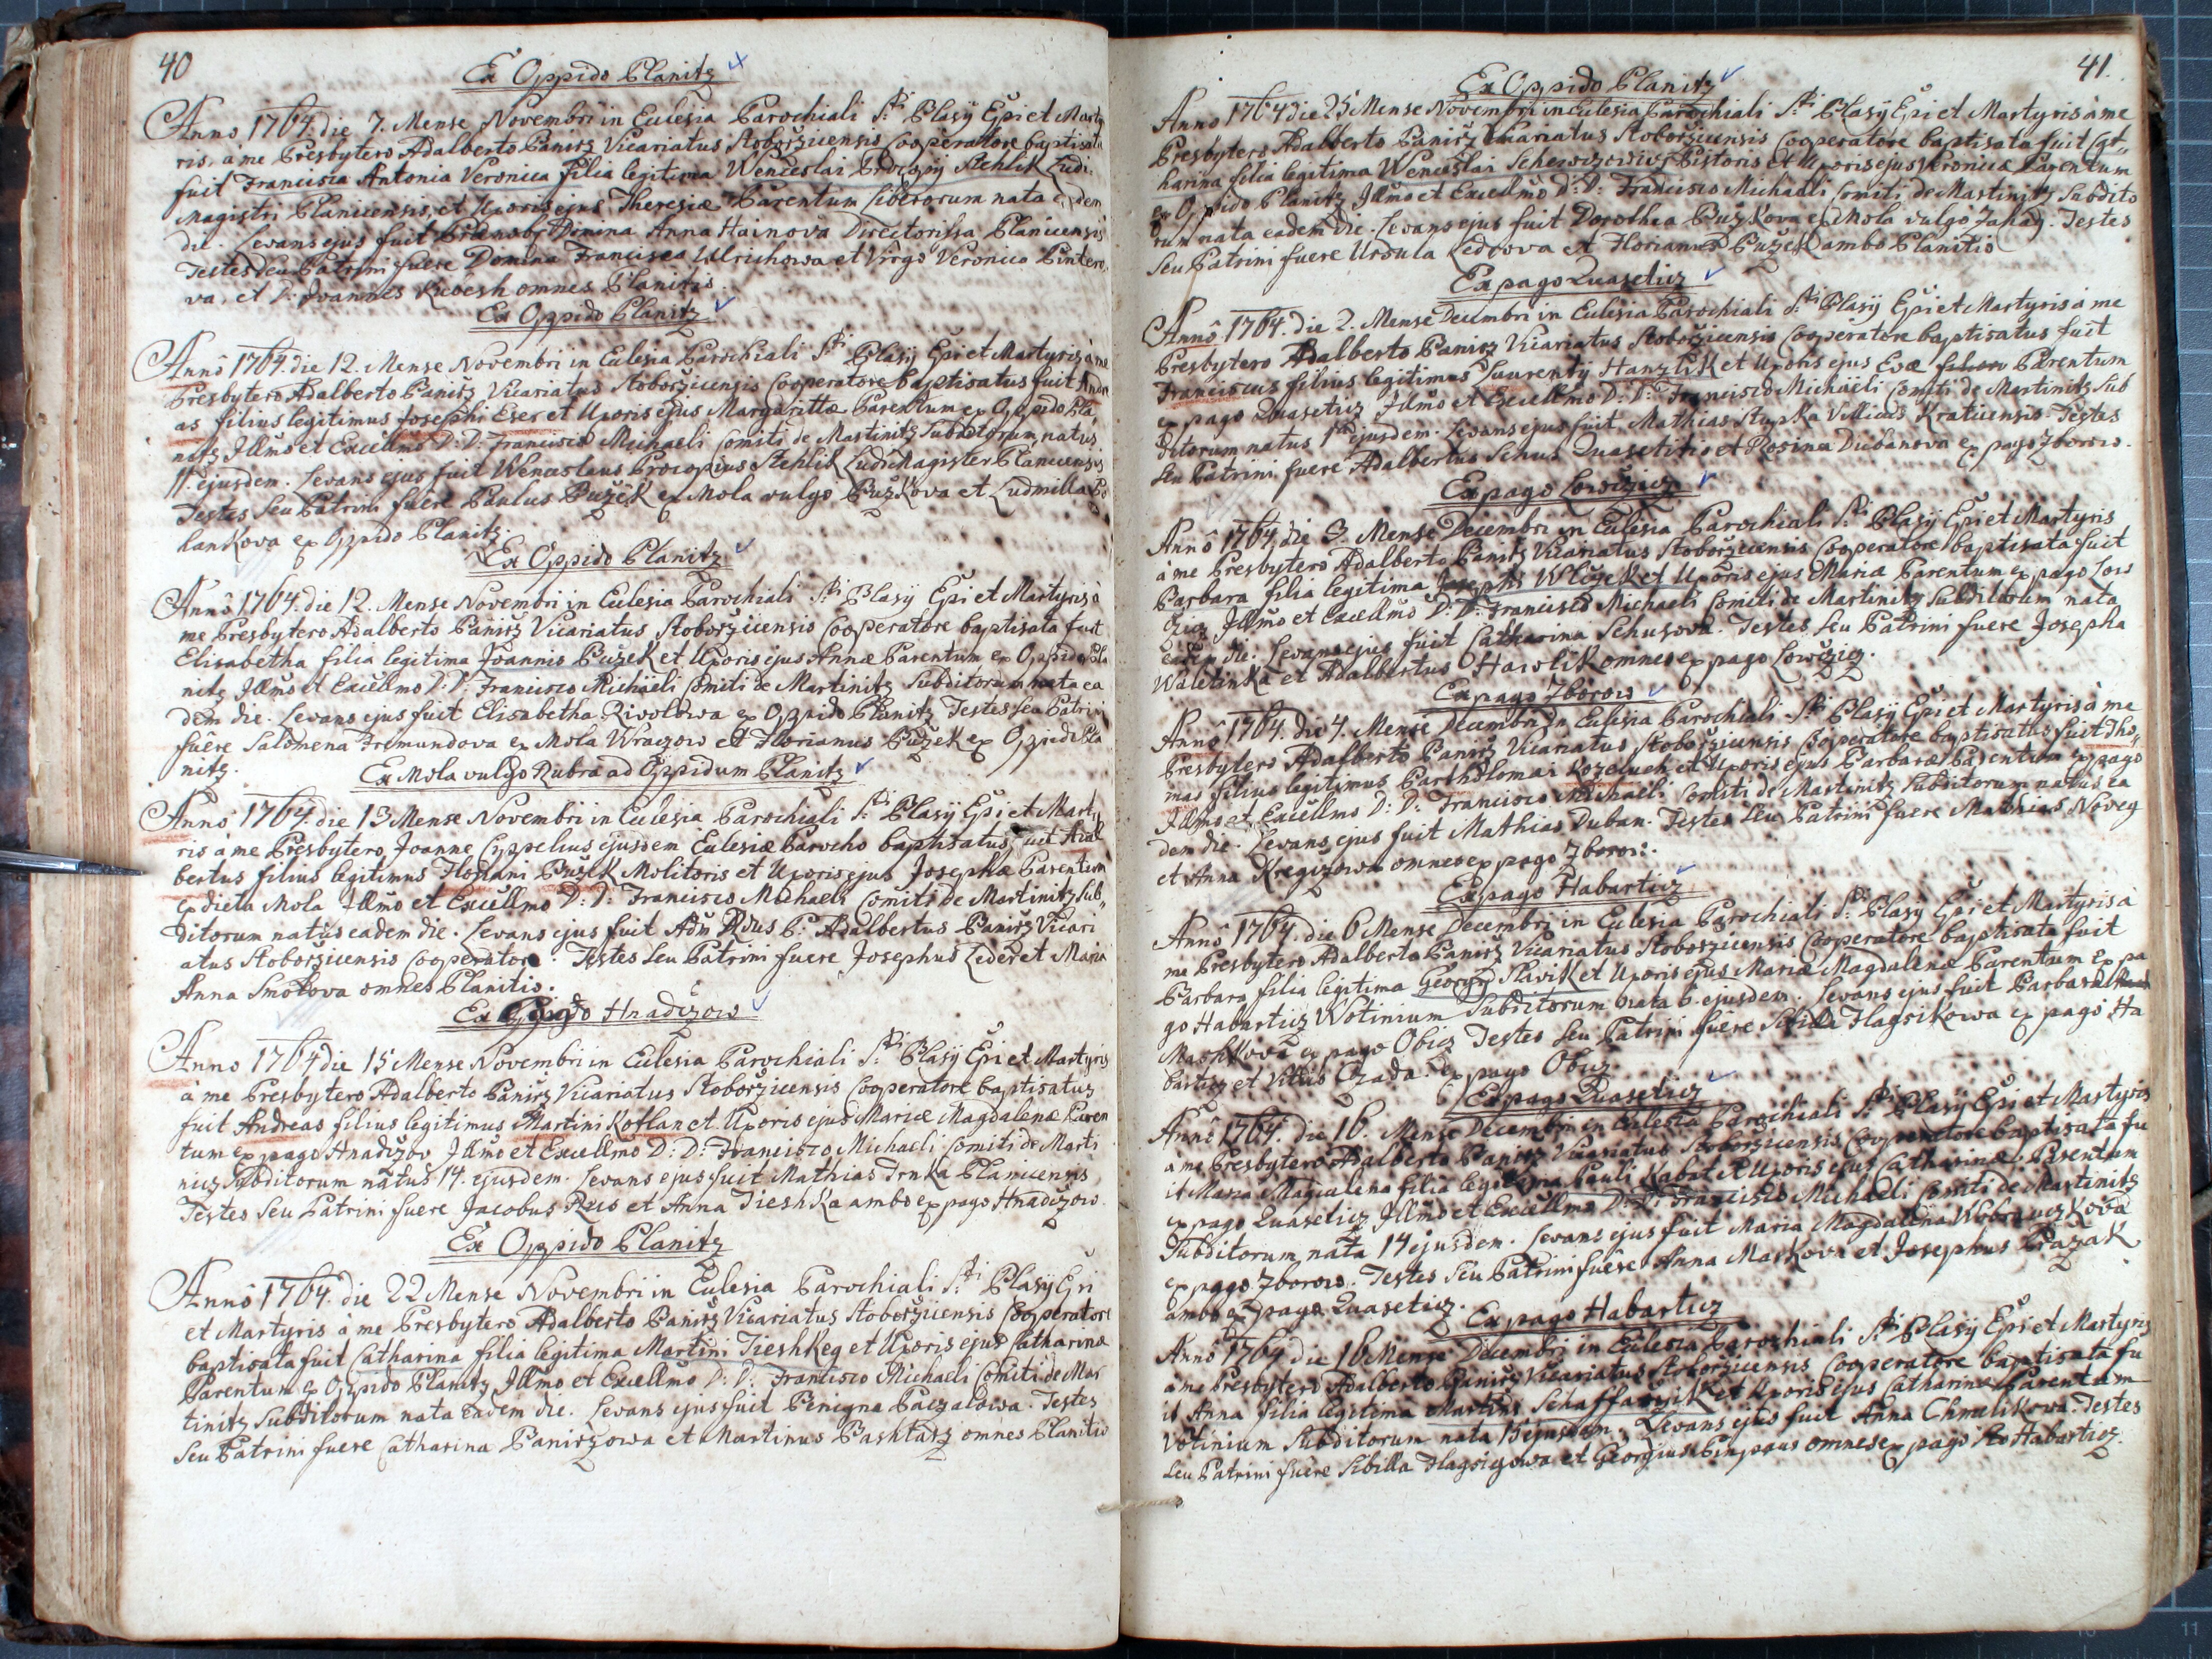 40
Ex Oppido Planitz
Anno 1764. die 7. Mense Novembri in Ecclesia Parochiali S:ti Blasÿ Epi et Marty
ris, à me Presbytero Adalberto Panirz Vicariatus Stoborzicensis Cooperatore baptisata
fuit Francisca Antonia Veronica filia legitima Wenceslai Procopÿ Stehlik Ludi
Magistri Planicensis, et Uxoris ejus Theresiæ Parentum liberorum nata eadem
die. Levans ejus fuit Domina Anna Hainova Directorissa Planicensis
Testes seu Patrini fuere Domina Francisca Ulrichowa et Virgo Veronica Pintero
va, et D: Joannes omnes Planitio.
Ex Oppido Planitz
Annô 1764. die 12. Mense Novembri in Eclesia Parochiali S:ti Blasÿ Epi et Martyris à me
Presbytero Adalberto Panirz Vicariatus Stoborzicensis Cooperatore baptisatus fuit Andre
as filius legitimus Josephi Eser et Uxoris ejus Margarittæ Parentum ex Oppido Pla
nitz Illmo et Excellmo D: D: Francisco Michaeli Comiti de Martinitz Subditorum, natus
11. ejusdem. Levans ejus fuit Wenceslaus Procopius Stehlik Ludi Magister Planicensis
Testes seu Patrini fuere Paulus Puzek ex Mola vulgo Puzkova et Ludmilla Po
lankova ex Oppido Planitz.
Ex Oppido Planitz
Annô 1764. die 12. Mense Novembri in Eclesia Parochiali S:ti Blasÿ Epi et Martyris à
me Presbytero Adalberto Panirz Vicariatus Stoborzicensis Cooperatore baptisata fuit
Elisabetha filia legitima Joannis Puzek et Uxoris ejus Annæ Parentum ex Oppido Pla
nitz Illmo et Excellmo D: D: Francisco Michaeli Comiti de Martinitz Subditorum nata ea
dem die. Levans ejus fuit Elisabetha Rivolowa ex Oppido Planitz Testes seu Patrini
fuêre Salomena Fremundova ex Mola Wraczow et Florianus Puzek ex Oppido Pla
nitz.
Ex Mola vulgo Rubra ad Oppidum Planitz
Anno 1764. die 13 Mense Novembri in Eclesia Parochiali S:ti Blasÿ Epi et Marty
ris à me Presbytero Joanne Cyppelius ejusdem Eclesiæ Parocho baptisatus fuit Adal
bertus filius legitimus Floriani Puzek Molitoris et Uxoris ejus Josephæ Parentum
ex dicta Mola Illmo et Excellmo D: D: Francisco Michaeli Comiti de Martinitz Sub
ditorum natus eadem die. Levans ejus fuit Adm Rdus P: Adalbertus Panirz Vicari
atus Stoborzicensis Cooperatore. Testes seu Patrini fuere Josephus Leder et Maria
Anna Smolova omnes Planitio.
Ex Pago Hnadizow
Anno 1764 die 15 Mense Novembri in Eclesia Parochiali S:ti Blasÿ Epi et Martyris
à me Presbytero Adalberto Panirz Vicariatus Stoborzicensis Cooperatore baptisatus
fuit Andreas filius legitimus Martini Kotlan et Uxoris ejus Mariæ Magdalenæ Paren
tum ex pago Hnadizov Illmo et Excellmo D: D: Francisco Michaeli Comiti de Marti
nicz Subditorum natus 14. ejusdem. Levans ejus fuit Mathias Trnka Planicensis
Testes Seu Patrini fuere Jacobus Reis et Anna Tieshka ambo ex pago Hnadizow.
Ex Oppido Planitz
Annô 1764. die 22 Mense Novembri in Eclesia Parochiali S:ti Blasÿ Epi
et Martyris à me Presbytero Adalberto Panirz Vicariatus Stoborzicensis Cooperatore
baptisata fuit Catharina filia legitima Martini Tieshkeg et Uxoris ejus Catharinæ
Parentum ex Oppido Planitz Illmo et Excellmo D: D: Francisco Michaeli Comiti de Mar
tinitz Subditorum nata eadem die. Levans ejus fuit Benigna Paczalowa. Testes
Seu Patrini fuere Catharina Panirzowa et Martinus Pashtarz omnes Planitio
41.
Ex Oppido Planitz
Anno 1764 die 25 Mense Novembri in Eclesia Parochiali S:ti Blasÿ Epi et Martyris à me
Presbytero Adalberto Panirz Vicariatus Stoborzicensis Cooperatore baptisata fuit Cat
harina filia legitima Wenceslai Pistoris et Uxoris ejus Veronicæ Parentum
ex Oppido Planitz Illmo et Excellmo D: D: Francisco Michaeli Comiti de Martinitz Subdito
rum nata eadem die. Levans ejus fuit Dorothea Puzkova ex Mola vulgo Zahag. Testes
Seu Patrini fuere Ursula Ledrova et Florianus Puzek ambo Planitio
Ex pago Quasetitz
Annô 1764. die 2. Mense Decembri in Eclesia Parochiali S:ti Blasÿ Epi et Martyris à me
Presbytero Adalberto Panirz Vicariatus Stoborzicensis Cooperatore baptisatus fuit
Franciscus filius legitimus Laurenty Hanzlik et Uxoris ejus Evæ Parentum
ex pago Quasetitz Illmo et Excellmo D: D: Francisco Michaeli Comiti de Martinitz Sub
ditorum natus 1ma ejusdem. Levans ejus fuit Mathias Stupka Villicus Kraticensis. Testes
seu Patrini fuere Adalbertus Schus Quasetitio et Rosina Dubanova ex pago Zborow.
Ex pago Lowczicz
Annô 1764. die 3. Mense Decembri in Eclesia Parochiali S:ti Blasÿ Epi et Martyris
à me Presbytero Adalberto Panirz Vicariatus Stoborzicensis Cooperatore baptisata fuit
Barbara filia legitima Josephi Wlczek et Uxoris ejus Mariæ Parentum ex pago Low
czicz Illmo et Excellmo D: D: Francisco Michaeli Comiti de Martinitz Subditorum nata
eadem die. Levans ejus fuit Catharina Schusova. Testes seu Patrini fuere Josepha
Waletinka et Adalbertus Hawlik omnes ex pago Lowczicz.
Ex pago Zborow
Annô 1764. die 4. Mense Decembri in Eclesia Parochiali S:ti Blasÿ Epi et Martyris à me
Presbytero Adalberto Panirz Vicariatus Stoborzicensis Cooperatore baptisatus fuit Tho
mas filius legitimus Bartholomæi Kozeluch et Uxoris ejus Barbaræ Parentum ex pago
Illmo et Excellmo D: D: Francisco Michaeli Comiti de Martinitz Subditorum natus ea
dem die. Levans ejus fuit Mathias Duban. Testes seu Patrini fuere Mathias Noveg
et Anna Kregczowa omnes ex pago Zborow.
Ex pago Habartitz
Annô 1764. die 6 Mense Decembri in Eclesia Parochiali S:ti Blasÿ Epi et Martyris à
me Presbytero Adalberto Panirz Vicariatus Stoborzicensis Cooperatore baptisata fuit
Barbara filia legitima Georgÿ Slavik et Uxoris ejus Mariæ Magdalenæ Parentum ex pa
go Habarticz Wotinium Subditorum nata 6 ejusdem. Levans ejus fuit Barbara
Mashkova ex pago Obicz Testes seu Patrini fuere Sibilla Hagsikowa ex pago Ha
barticz et Vittus Czada ex pago Obicz.
Ex pago Quaseticz
Annô 1764. die 16. Mense Decembri in Eclesia Parochiali S:ti Blasÿ Epi et Martyris
à me Presbytero Adalberto Panirz Vicariatus Stoborzicensis Cooperatore baptisata fu
it Maria Magdalena filia legitima Pauli Kabat et Uxoris ejus Catharinæ Parentum
ex pago Quaseticz Illmo et Excellmo D: D: Francisco Michaeli Comiti de Martinitz
Subditorum nata 14 ejusdem. Levans ejus fuit Maria Magdalena
ex pago Zborow. Testes seu Patrini fuere Anna Mashkova et Josephus Prazak
ambo ex pago Quaseticz.
Ex pago Habarticz
Annô 1764 die 16 Mense Decembri in Eclesia Parochiali S:ti Blasÿ Epi et Martyris
à me Presbytero Adalberto Panirz Vicariatus Stoborzicensis Cooperatore baptisata fu
it Anna filia legitima Martini Schaffarzik et Uxoris ejus Catharinæ Parentum
Votinium Subditorum nata 15 ejusdem. Levans ejus fuit Anna Chmelikowa. Testes
seu Patrini fuere Sibilla et Georgius omnes ex pago Habarticz.